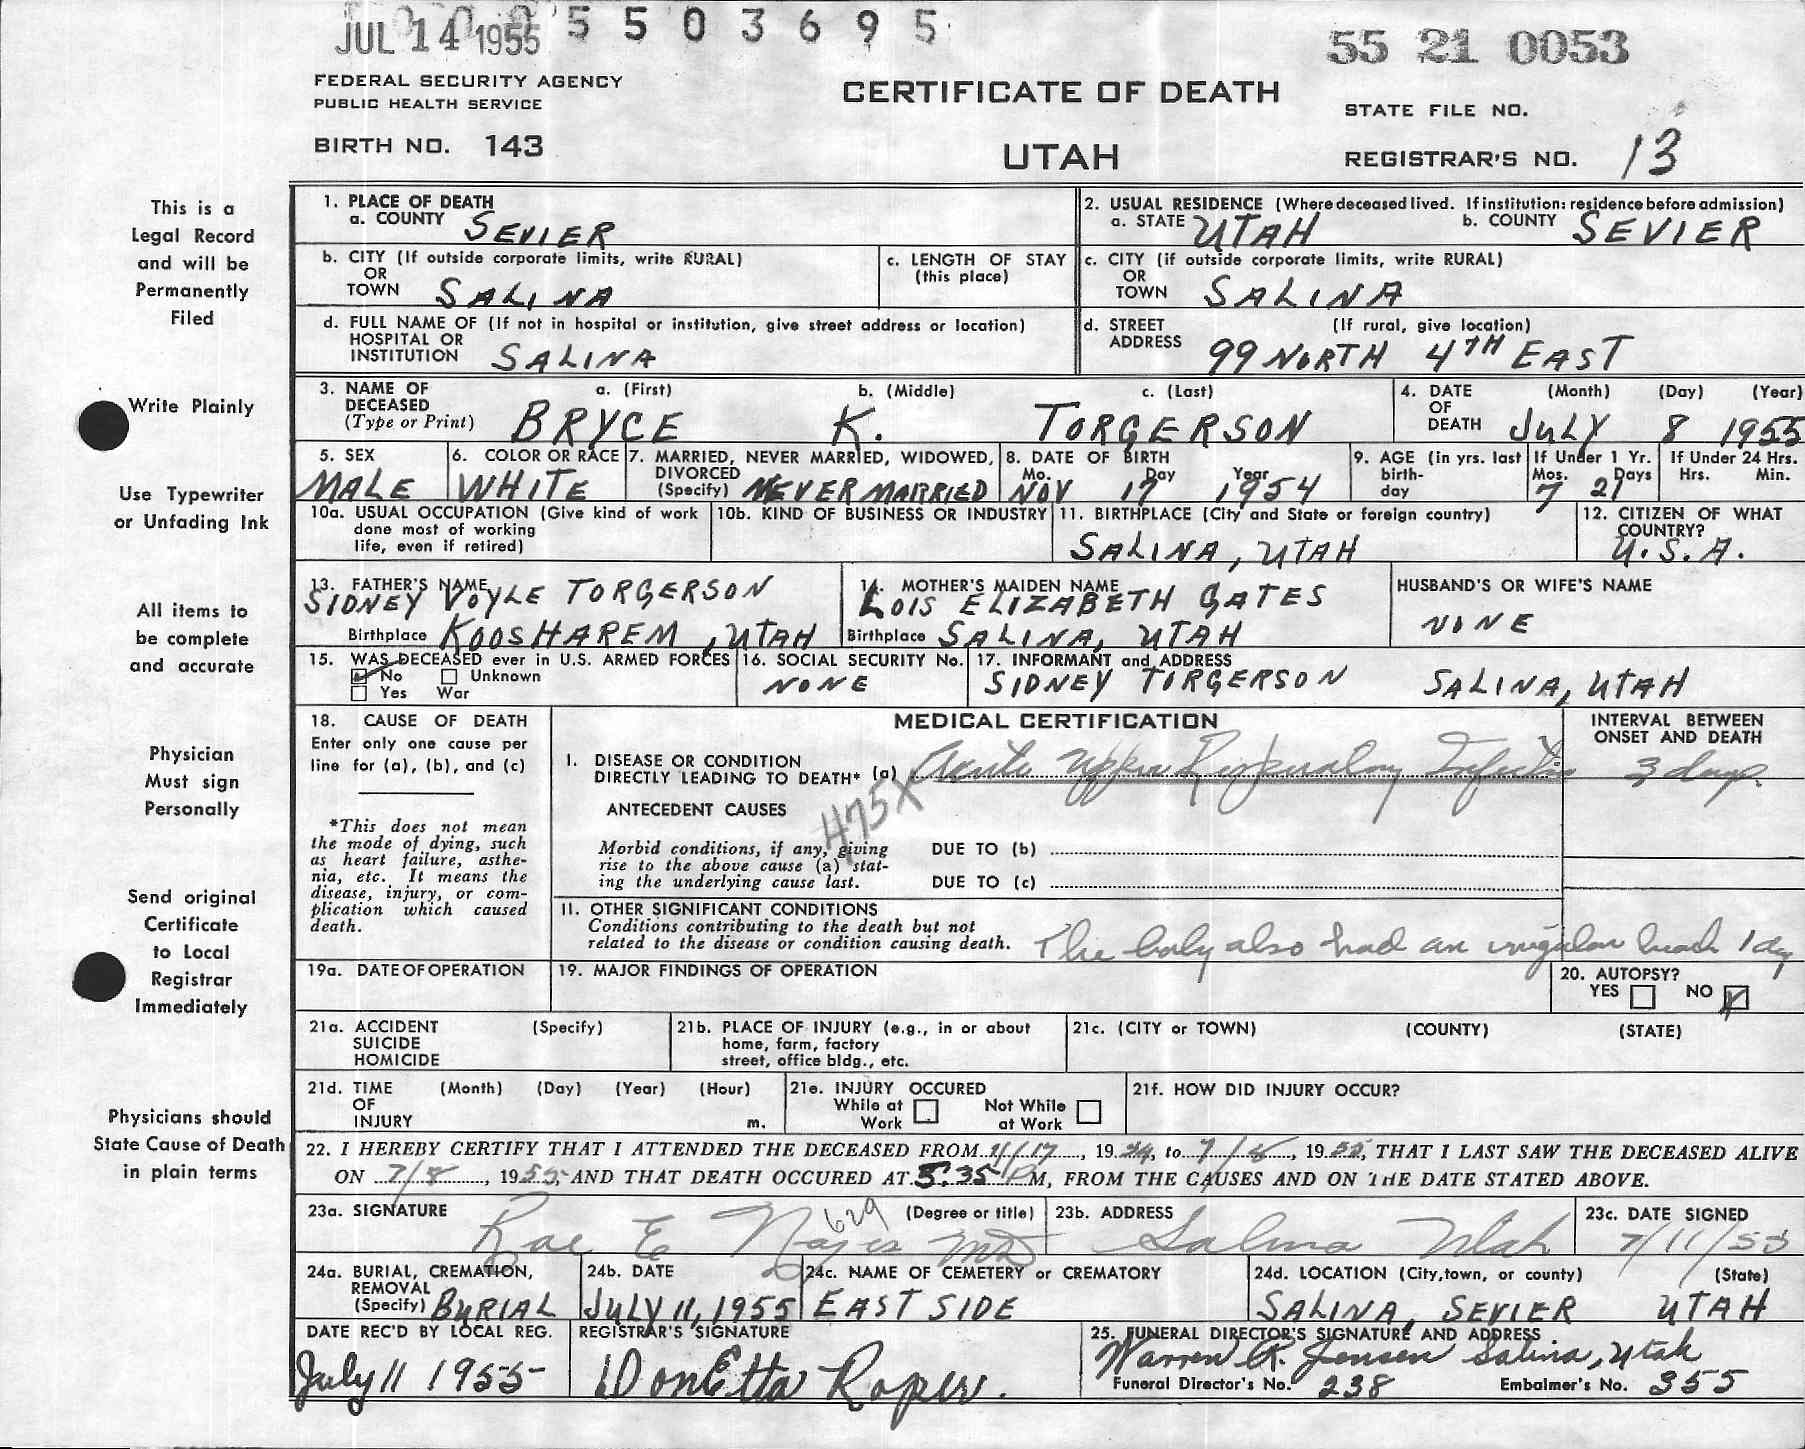 JUL 14 1955 5 5 0 3 6 9 5
55 21 0053
FEDERAL SECURITY AGENCY
PUBLIC HEALTH SERVICE
BIRTH NO. 143
CERTIFICATE OF DEATH
UTAH
STATE FILE NO.
REGISTRAR'S NO. 13
This is a
Legal Record
and will be
Permanently
Filed
Write Plainly
Use Typewriter
or Unfading Ink
All items to
be complete
and accurate
Physician
Must sign
Personally
Send original
Certificate
to Local
Registrar
Immediately
Physicians should
State Cause of Death
in plain terms
1. PLACE OF DEATH
a. COUNTY SEVIER
2. USUAL RESIDENCE (Where deceased lived. If institution: residence before admission)
a. STATE UTAH b. COUNTY SEVIER
b. CITY (If outside corporate limits, write RURAL)
OR
TOWN SALINA
c. LENGTH OF STAY
(this place)
c. CITY (if outside corporate limits, write RURAL)
OR
TOWN SALINA
d. FULL NAME OF (If not in hospital or institution, give street address or location)
HOSPITAL OR
INSTITUTION SALINA
d. STREET (If rural, give location)
ADDRESS 99 NORTH 4TH EAST
3. NAME OF a. (First) b. (Middle) c. (Last)
DECEASED
(Type or Print) BRYCE K. TORGERSON
4. DATE (Month) (Day) (Year)
OF
DEATH JULY 8 1955
5. SEX
MALE
6. COLOR OR RACE
WHITE
7. MARRIED, NEVER MARRIED, WIDOWED,
DIVORCED
(Specify) NEVER MARRIED
8. DATE OF BIRTH
Mo. Day Year
NOV 17 1954
9. AGE (in yrs. last
birth-
day
If Under 1 Yr.
Mos. Days
7 21
If Under 24 Hrs.
Hrs. Min.
10a. USUAL OCCUPATION (Give kind of work
done most of working
life, even if retired)
10b. KIND OF BUSINESS OR INDUSTRY
11. BIRTHPLACE (City and State or foreign country)
SALINA, UTAH
12. CITIZEN OF WHAT
COUNTRY?
U.S.A.
13. FATHER'S NAME
SIDNEY VOYLE TORGERSON
Birthplace KOOSHAREM, UTAH
14. MOTHER'S MAIDEN NAME
LOIS ELIZABETH GATES
Birthplace SALINA, UTAH
HUSBAND'S OR WIFE'S NAME
NONE
15. WAS DECEASED ever in U.S. ARMED FORCES
No Unknown
Yes War
16. SOCIAL SECURITY No.
NONE
17. INFORMANT and ADDRESS
SIDNEY TORGERSON SALINA, UTAH
18. CAUSE OF DEATH
Enter only one cause per
line for (a), (b), and (c)
*This does not mean
the mode of dying, such
as heart failure, asthe-
nia, etc. It means the
disease, injury, or com-
plication which caused
death.
MEDICAL CERTIFICATION
INTERVAL BETWEEN
ONSET AND DEATH
I. DISEASE OR CONDITION
DIRECTLY LEADING TO DEATH* (a) Acute Upper Respiratory Infection 3 days.
ANTECEDENT CAUSES
475X
Morbid conditions, if any, giving
rise to the above cause (a) stat-
ing the underlying cause last.
DUE TO (b)
DUE TO (c)
II. OTHER SIGNIFICANT CONDITIONS
Conditions contributing to the death but not
related to the disease or condition causing death. The baby also had an irregular 1 day
19a. DATE OF OPERATION
19. MAJOR FINDINGS OF OPERATION
20. AUTOPSY?
YES NO
21a. ACCIDENT (Specify)
SUICIDE
HOMICIDE
21b. PLACE OF INJURY (e.g., in or about
home, farm, factory
street, office bldg., etc.
21c. (CITY or TOWN) (COUNTY) (STATE)
21d. TIME (Month) (Day) (Year) (Hour)
OF
INJURY m.
21e. INJURY OCCURED
While at Not While
Work at Work
21f. HOW DID INJURY OCCUR?
22. I HEREBY CERTIFY THAT I ATTENDED THE DECEASED FROM 11/17, 1954, to 7/8, 1955, THAT I LAST SAW THE DECEASED ALIVE
ON 7/8, 1955, AND THAT DEATH OCCURED AT 5:35 P M, FROM THE CAUSES AND ON THE DATE STATED ABOVE.
23a. SIGNATURE (Degree or title)
Rae E Noyes MD
629
23b. ADDRESS
Salina Utah
23c. DATE SIGNED
7/11/55
24a. BURIAL, CREMATION,
REMOVAL
(Specify) BURIAL
24b. DATE
JULY 11, 1955
24c. NAME OF CEMETERY or CREMATORY
EAST SIDE
24d. LOCATION (City, town, or county) (State)
SALINA, SEVIER UTAH
DATE REC'D BY LOCAL REG.
July 11 1955
REGISTRAR'S SIGNATURE
DonEtta Roper.
25. FUNERAL DIRECTOR'S SIGNATURE AND ADDRESS
Warren R. Jensen Salina, Utah
Funeral Director's No. 238 Embalmer's No. 355